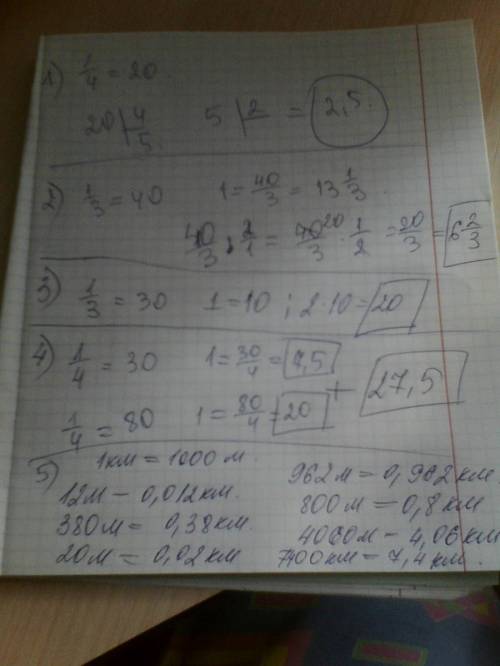 1) 1/4 = 20
20 | 4 5. 5 | 2 = 2,5.
2) 1/3 = 40 1 = 40/3 = 13 1/3.
40/3 : 2/1 = 40 20/3 · 1/2 = 20/3 = 6 2/3
3) 1/3 = 30 1 = 10 ; 2 · 10 = 20
4) 1/4 = 30 1 = 30/4 = 7,5
+ 27,5
1/4 = 80 1 = 80/4 = 20
5) 1км = 1000 м.
12м – 0,012км. 962м = 0,962км
380м = 0,38км. 800м = 0,8км
20м = 0,02км 4060м – 4,06км
7400км = 7,4км.